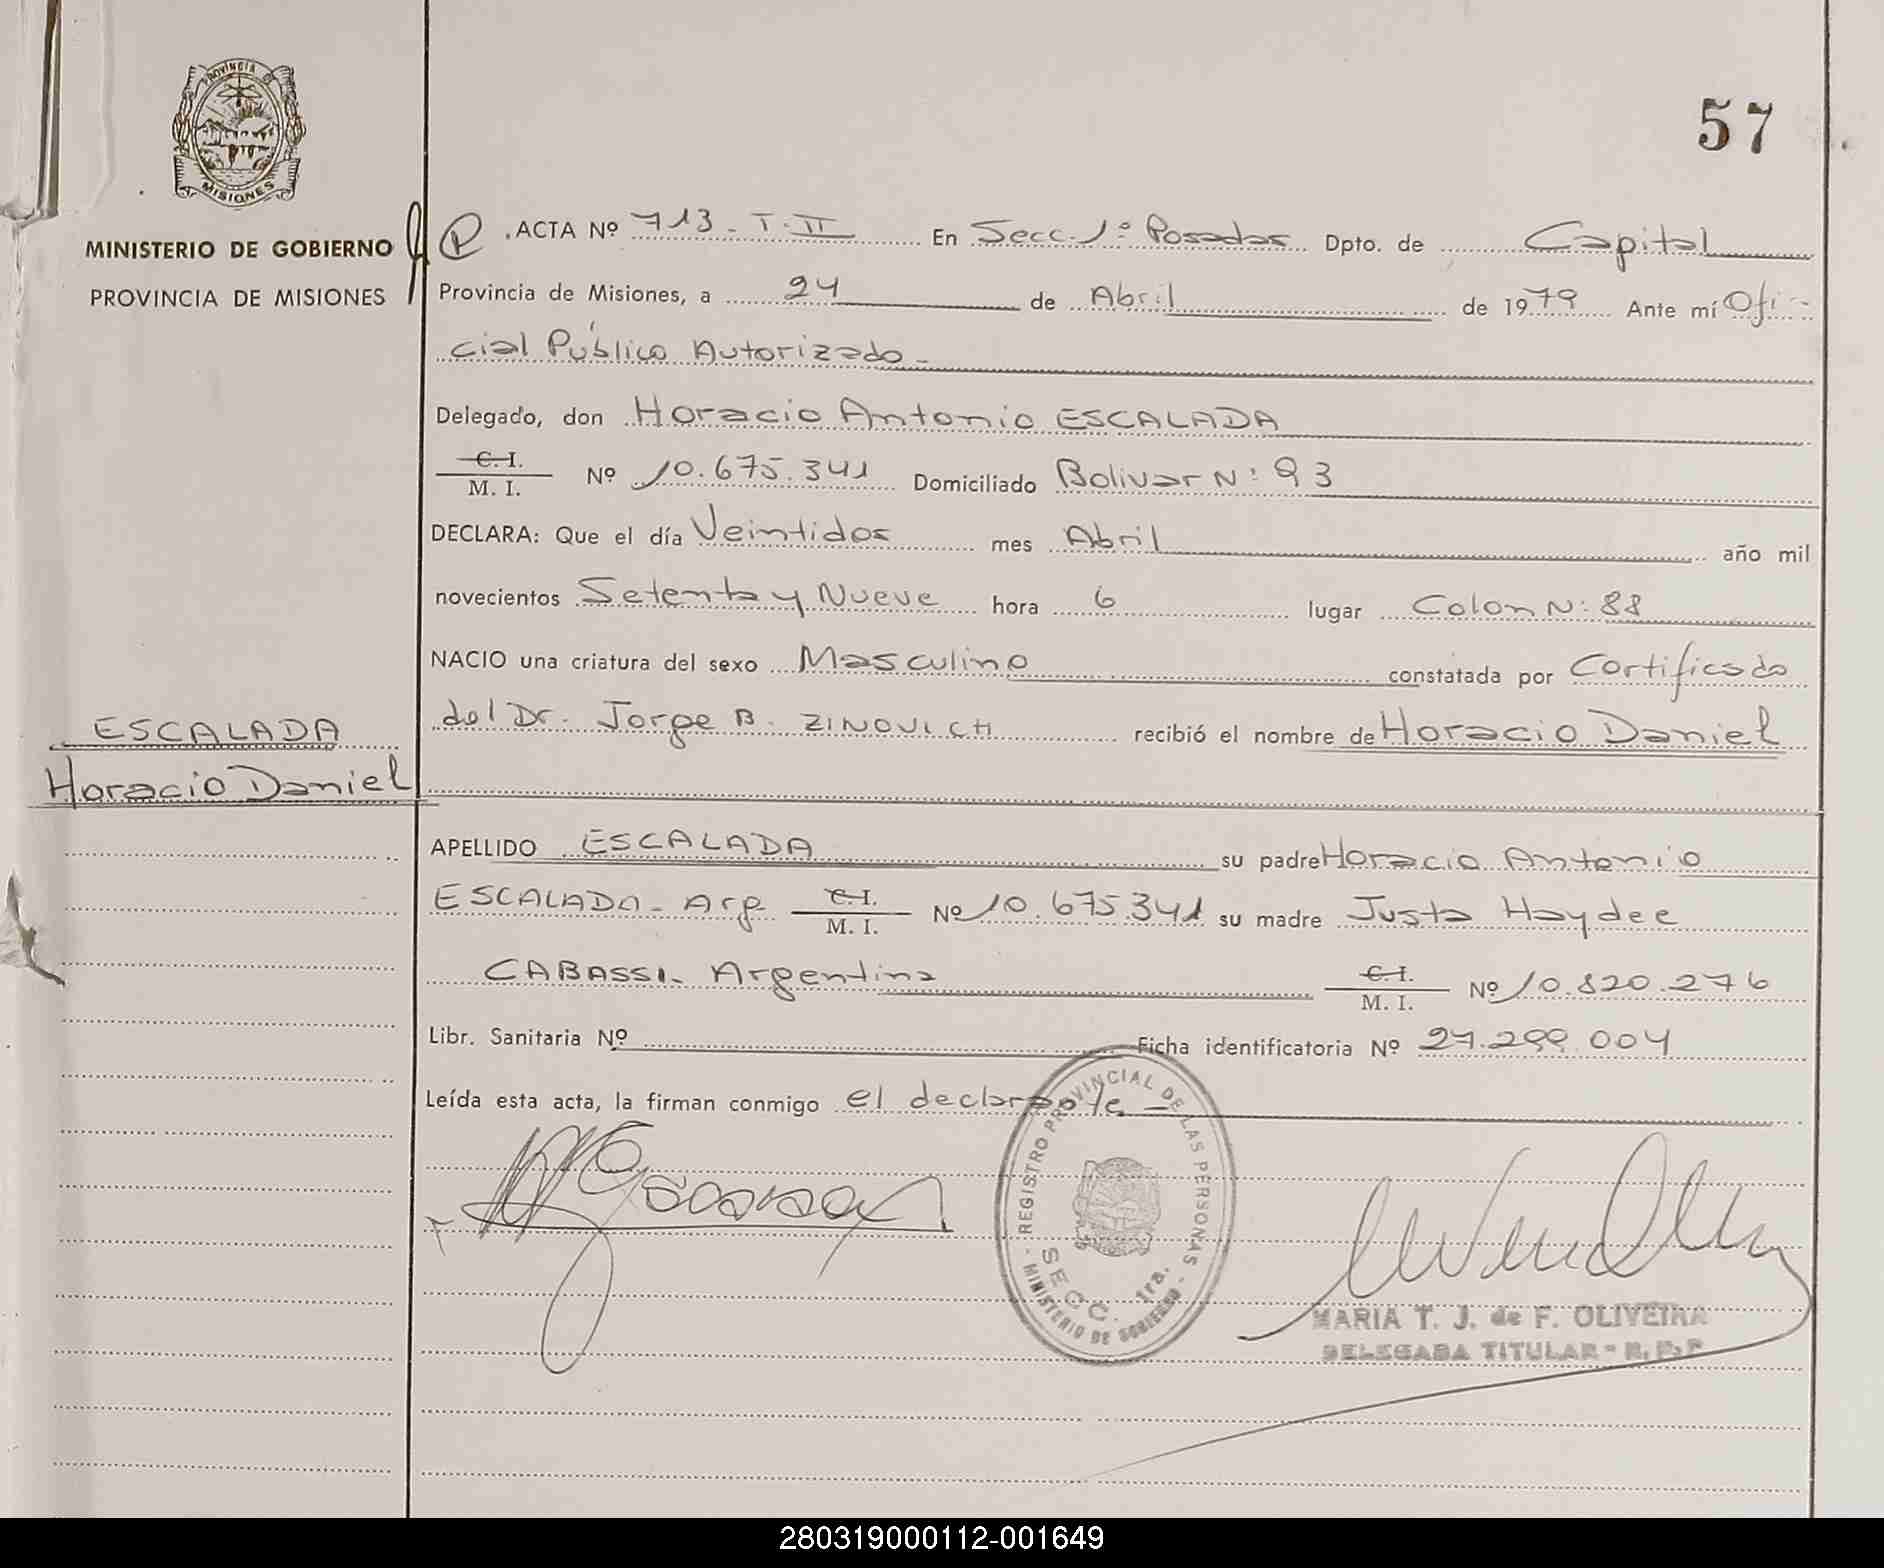 57
PROVINCIA DE
MISIONES
MINISTERIO DE GOBIERNO
PROVINCIA DE MISIONES
P .ACTA Nº 713 - T. II En Secc. 1º Posadas Dpto. de Capital
Provincia de Misiones, a 24 de Abril de 1979 Ante mí Ofi-
cial Público Autorizado -
Delegado, don Horacio Antonio ESCALADA
C. I.
M. I. Nº 10.675.341 Domiciliado Bolivar N: 93
DECLARA: Que el día Veintidos mes Abril año mil
novecientos Setenta y Nueve hora 6 lugar Colon N: 88
NACIO una criatura del sexo Masculino constatada por Certificado
del Dr. Jorge B. ZINOVICH recibió el nombre de Horacio Daniel
ESCALADA
Horacio Daniel
APELLIDO ESCALADA su padre Horacio Antonio
ESCALADA - Arg C. I.
M. I. Nº 10.675.341 su madre Justa Haydee
CABASSI - Argentina C. I.
M. I. Nº 10.820.276
Libr. Sanitaria Nº Ficha identificatoria Nº 27.299.004
Leída esta acta, la firman conmigo el declarante -
REGISTRO PROVINCIAL DE LAS PERSONAS
SECC. 1ra.
- MINISTERIO DE GOBIERNO -
MARIA T. J. de F. OLIVEIRA
DELEGADA TITULAR - R. P. P
280319000112-001649